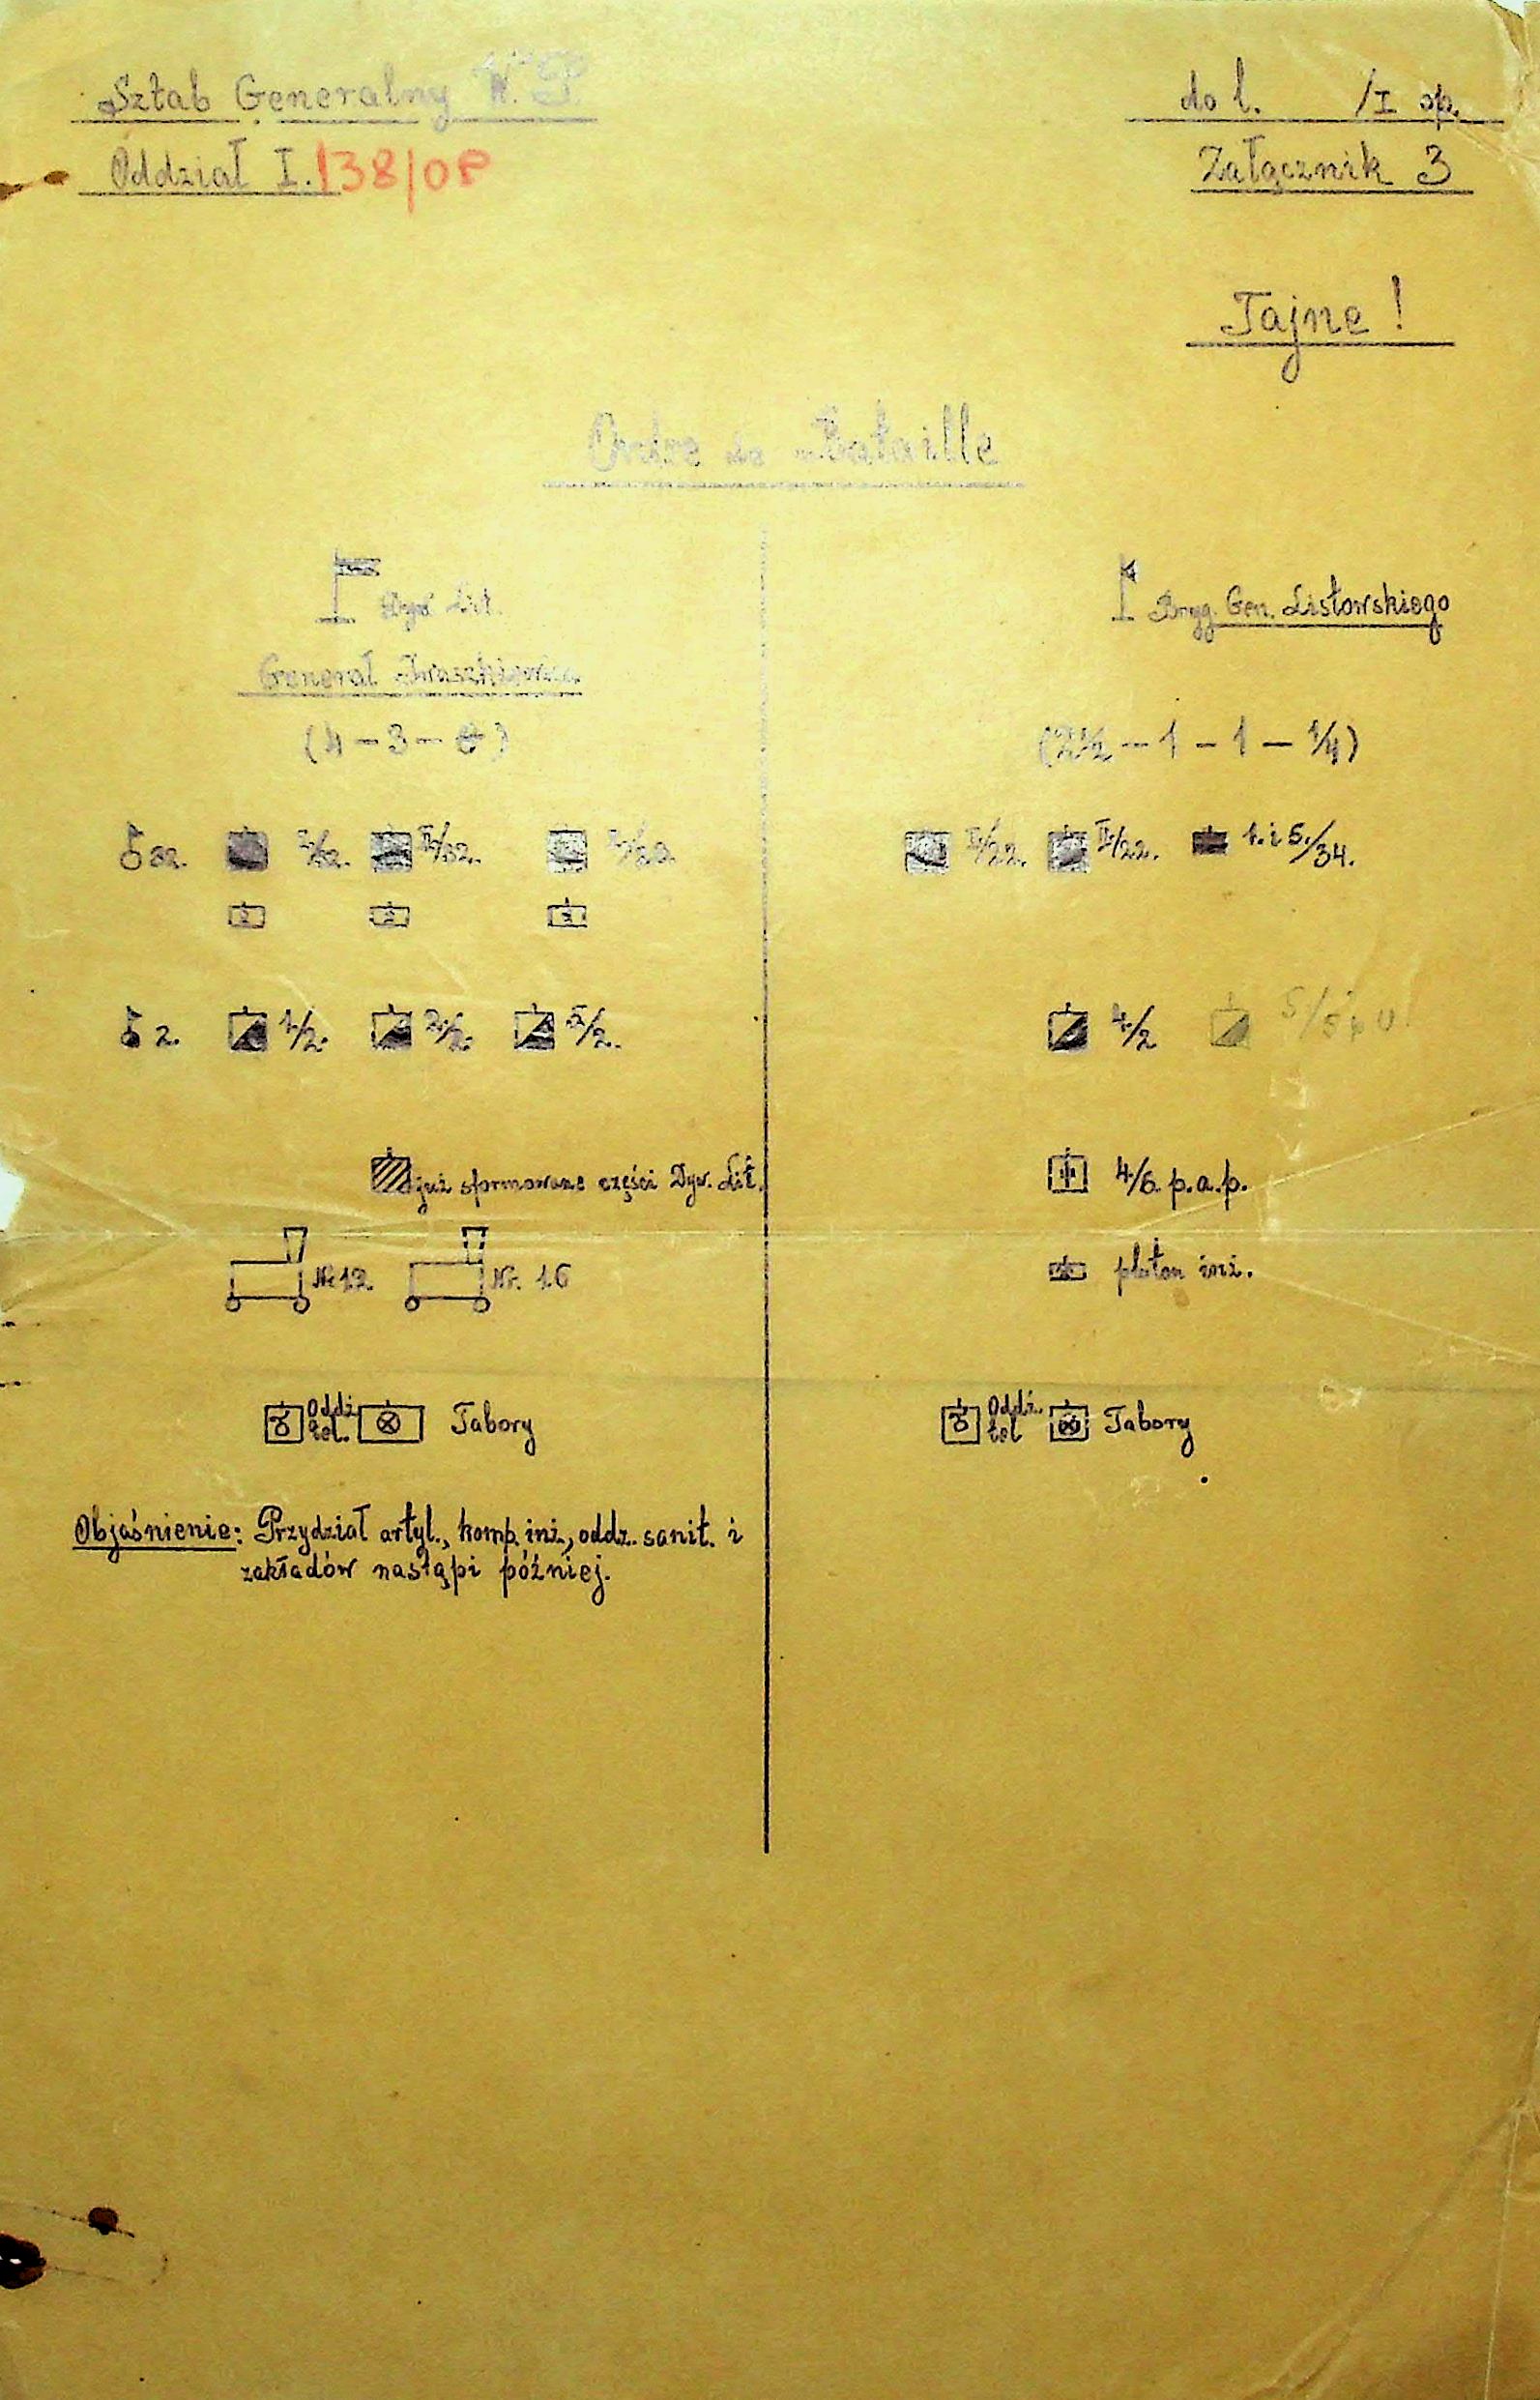 Sztab Generalny W.P.
Oddział I. 138/OP
do l. /I op.
Załącznik 3
Tajne!
Ordre de Bataille
Lit.
Generał Iwaszkiewicz
(4 – 3 –
32. II/32.
2. 1/2. 2/2. 5/2.
już sformowane części Dyw. Lit.
Nr 12 Nr. 16
Oddz. tel. Tabory
Objaśnienie: Przydział artyl., komp. inż., oddz. sanit. i
zakładów nastąpi później.
Bryg. Gen. Listowskiego
(2½ – 1 – 1 – ¼)
I/22. II/22. 1. i 5./34.
4/2
4/6. p.a.p.
pluton inż.
Oddz. tel Tabory